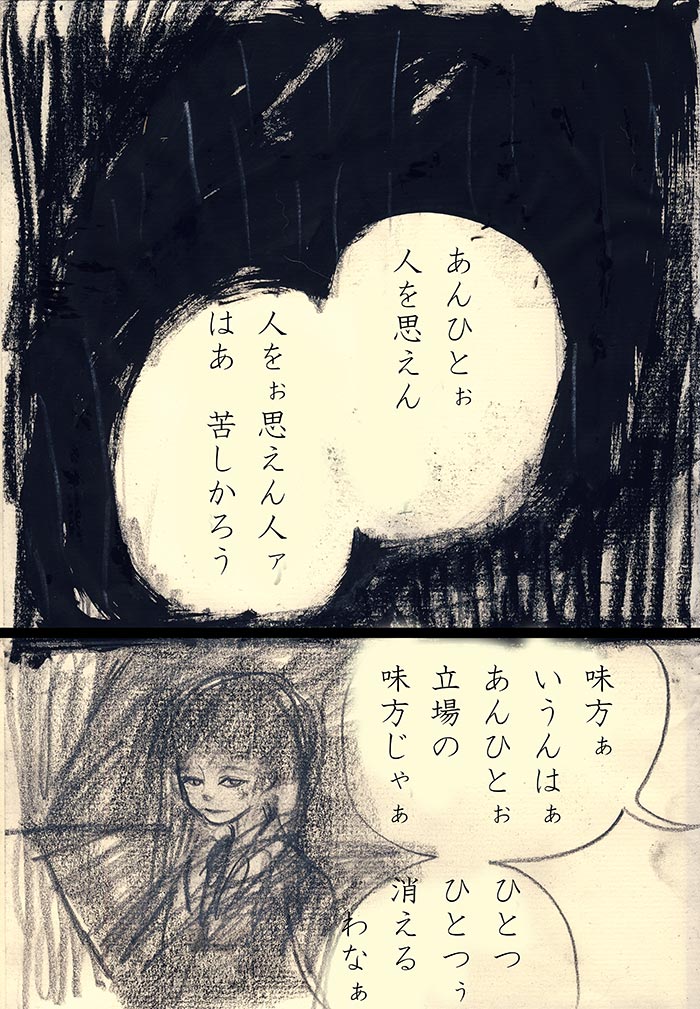 あんひとぉ
人を思えん
人をぉ思えん人ァ
はあ　苦しかろう
味方ぁ
いうんはぁ
あんひとぉ
立場の
味方じゃぁ
ひとつ
ひとつぅ
消える
わなぁ